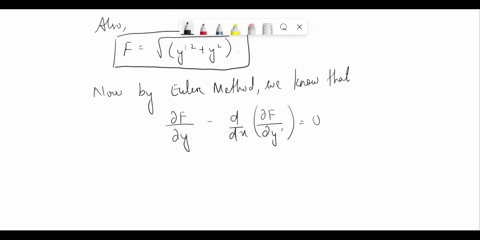 Also,
F = √(y'² + y²).
Now by Euler Method, we know that
∂F/∂y - d/dx (∂F/∂y') = 0